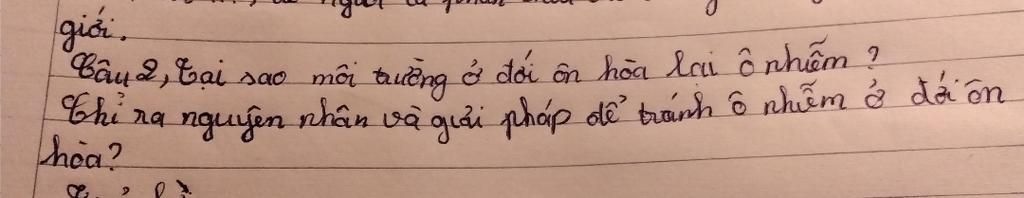 giới.
Câu 2, Tại sao môi trường ở đới ôn hòa lại ô nhiễm?
Chỉ ra nguyên nhân và giải pháp để tránh ô nhiễm ở đới ôn
hòa?